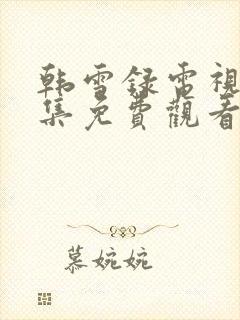 韩雪录電視
集免費觀看
慕婉婉